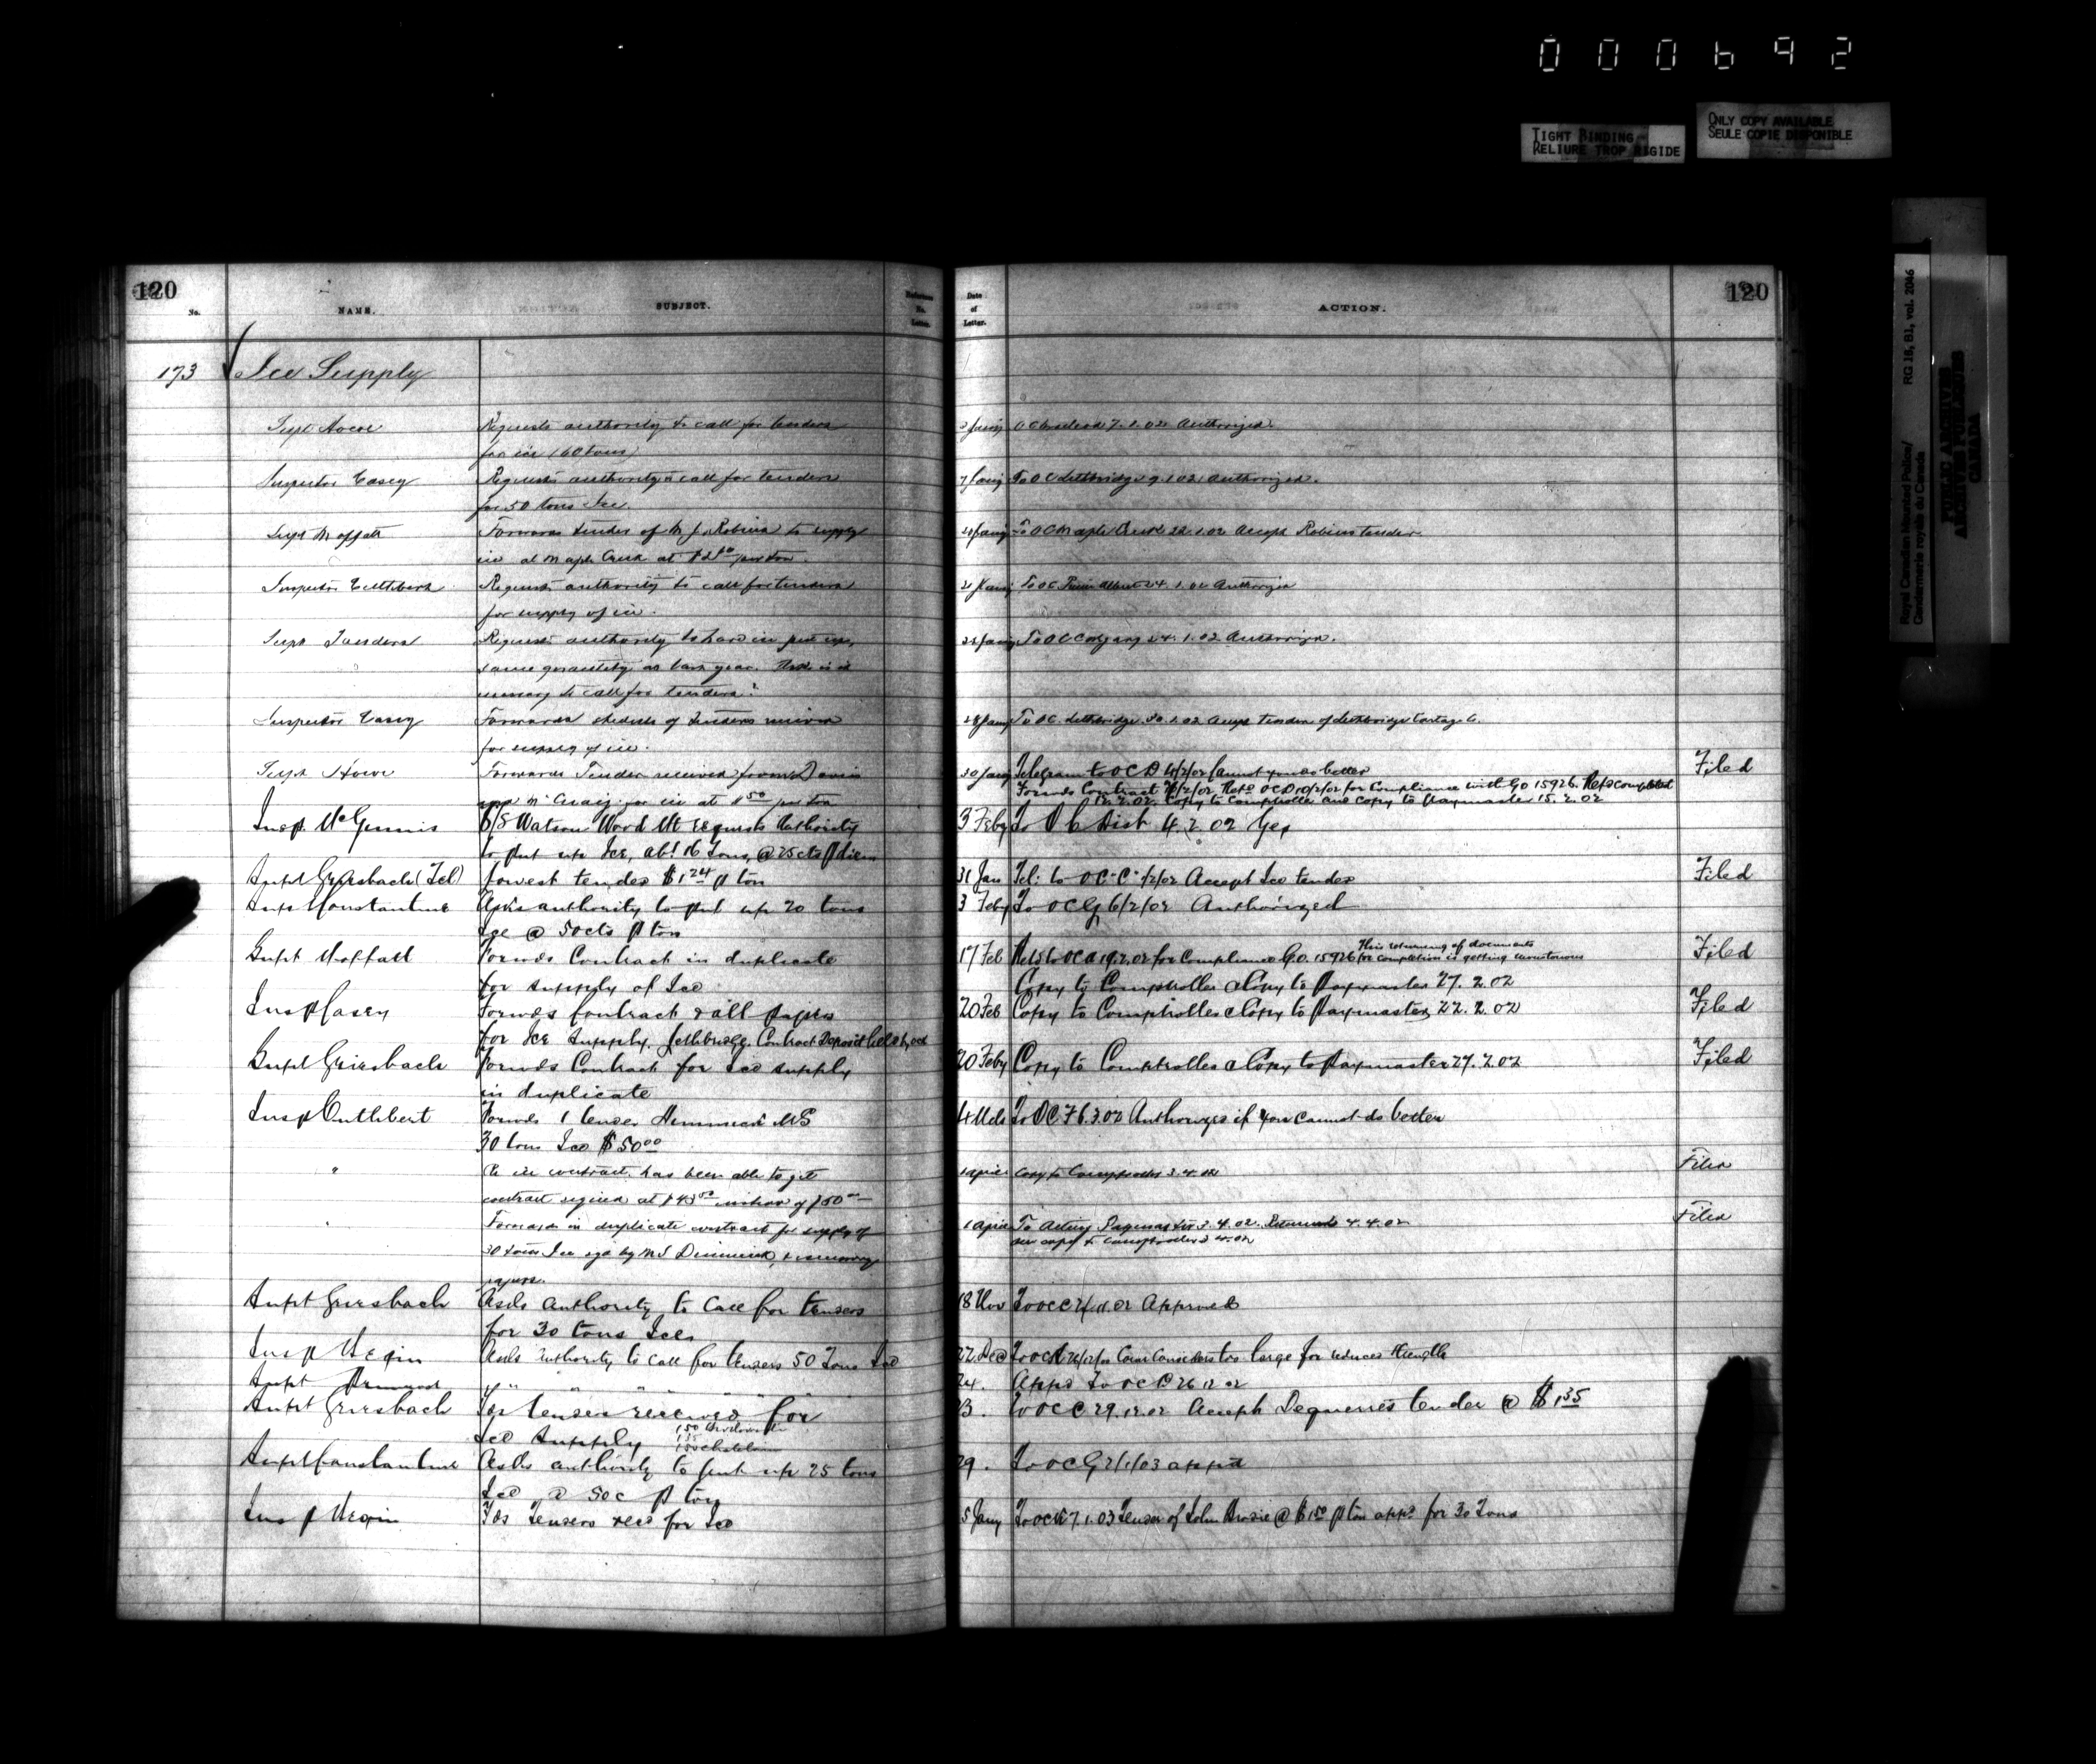 000692
TIGHT BINDING
RELIURE TROP RIGIDE
ONLY COPY AVAILABLE
SEULE COPIE DISPONIBLE
Royal Canadian Mounted Police/ RG 18, B1, vol. 2046
Gendarmerie royale du Canada
PUBLIC ARCHIVES
ARCHIVES PUBLIQUES
CANADA
120
No. NAME. SUBJECT. Reference No. Letter.
Date of Letter. ACTION. 120
173 Ice Supply
Supt Howe Requests authority to call for tenders
for ice 160 tons
Jany O C Macleod 7.1.02 Authorized.
Inspector Casey Requests authority to call for tenders
for 50 tons Ice.
7 Jany To O C Lethbridge 9.1.02 Authorized.
Supt Moffatt Forwards tender of M J Robins to supply
ice at Maple Creek at per ton.
Jany To O C Maple Creek 22.1.02 Accept Robins tender
Inspector Cuthbert Requests authority to call for tenders
for supply of ice.
21 Jany To OC Prince Albert 24.1.02 Authorized
Supt Sanders Requests authority to have ice put up,
same quantity as last year.
necessary to call for tenders?
Jany To O C Calgary 24.1.02 Authorized.
Inspector Casey Forwards schedule of tenders received
for supply of ice.
28 Jany To OC Lethbridge 30.1.02 Accept tender of Lethbridge Cartage Co.
Supt Howe Forwards Tender received from Davis
for ice at 1 50 per ton
30 Jany Telegram to OC D 4/2/02 Cannot you do better Filed
Forwds Contract Retd OC D 10/2/02 for Compliance with GO 15926. Retd completed
12.2.02. Copy to Comptroller and Copy to Paymaster 15.2.02
Insp McGinnis S/S Watson Wood Mt requests Authority
to put up Ice, abt 16 Tons, @ 25 cts p diem
3 Feby To O C Dist 4.2.02 Yes
Supt Griesbach (Tel) Lowest tender $1 24 p ton
31 Jan Tel: to O C "C" 1/2/02 Accept Ice tender Filed
Supt Constantine Asks authority to put up 20 tons
Ice @ 50 cts p ton
3 Feby To OC G 6/2/02 Authorized
Supt Moffatt Forwds Contract in duplicate
for supply of Ice
17 Feb Retd to OC A 19.2.02 for Compliance G.O. 15926 This returning of documents for completion is getting monotonous Filed
Copy to Comptroller & Copy to Paymaster 27.2.02
Insp Casey Forwds Contract & all papers
for Ice supply, Lethbridge. Contract Deposit held by
20 Feb Copy to Comptroller & Copy to Paymaster 22.2.02 Filed
Supt Griesbach Forwds Contract for Ice supply
in duplicate
20 Feby Copy to Comptroller & Copy to Paymaster 27.2.02 Filed
Insp Cuthbert Forwds 1 tender Dimmick M S
30 tons Ice $50 00
4 Mch To OC F 6.3.02 Authorizes if you cannot do better
" Re ice contract has been able to get
contract signed at instead of $50 00
1 April Copy to Comptroller 3.4.02 Filed
" Forwards in duplicate contract for supply of
30 tons Ice sgd by M S Dimmick, & necessary
papers.
1 April To Acting Paymaster 3.4.02. Returned 4.4.02 Filed
one copy to Comptroller
Supt Griesbach Asks authority to call for tenders
for 30 tons Ice.
18 Nov To OC C Approved
Insp Asks authority to call for tenders 50 Tons Ice
22 Dec Considers too large for reduced strength
Supt " " " " " "
24. Appd To OC 26.12.02
Supt Griesbach Fds tenders received for
Ice supply
23. To OC C 29.12.02 Accepts tender @ $1 35
Supt Constantine Asks authority to put up 25 tons
Ice @ 50c p ton
29. To OC G 2/1/03 appd
Insp Fds tenders recd for Ice
5 Jany To OC 7.1.03 Tender of John @ $1 50 p ton appd for 30 Tons